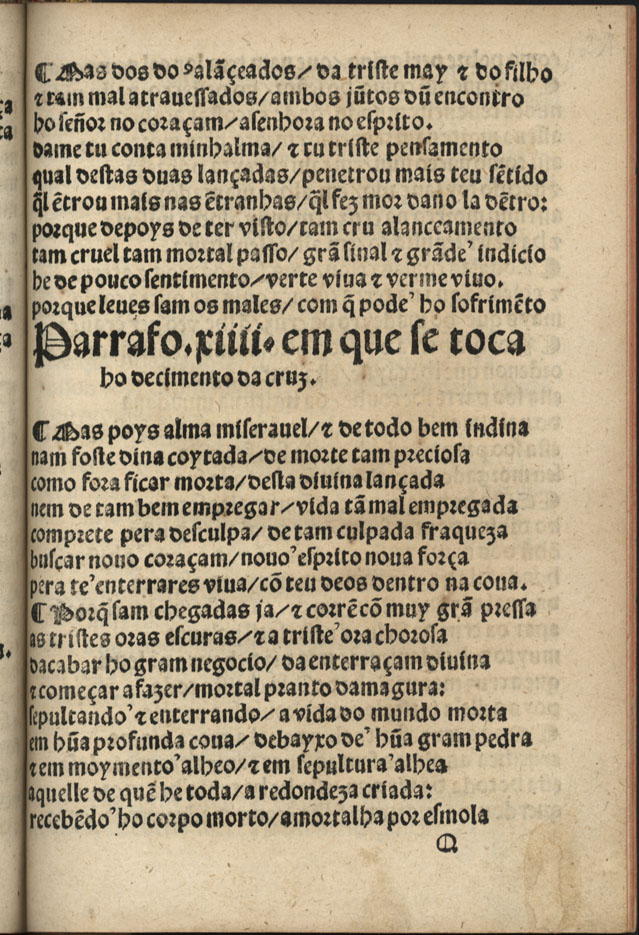 ¶ Mas dos do'alãçeados/ da triste may ⁊ do filho
⁊ tam mal atrauessados/ambos jũtos dũ encontro
ho señor no coraçam/asenhora no esprito.
dame tu conta minhalma/ ⁊ tu triste pensamento
qual destas duas lançadas/penetrou mais teu sẽtido
q̃l ẽtrou mais nas ẽtranhas/q̃l fez mor dano la dẽtro:
porque depoys de ter visto/tam cru alanceamento
tam cruel tam mortal passo/ grã sinal ⁊ grãde' indicio
he de pouco sentimento/verte viua ⁊ verme viuo.
porque leues sam os males/ com q̃ pode' ho sofrimẽto
Parrafo.xiiii. em que se toca
ho decimento da cruz.
¶ Mas poys alma miserauel/ ⁊ de todo bem indina
nam foste dina coytada/de morte tam preciosa
como fora ficar morta/desta diuina lançada
nem de tam bem empregar/vida tã mal empregada
comprete pera desculpa/ de tam culpada fraqueza
buscar nouo coraçam/nouo'esprito noua força
pera te'enterrares viua/cõ teu deos dentro na coua.
¶ Porq̃ sam chegadas ja/ ⁊ corrẽ cõ muy grã pressa
as tristes oras escuras/ ⁊ a triste'ora chorosa
dacabar ho gram negocio/ da enterraçam diuina
⁊ começar a fazer/mortal pranto damagura:
sepultando'⁊ enterrando/ a vida do mundo morta
em hũa profunda coua/ debayxo de' hũa gram pedra
⁊ em moymento'alheo/ ⁊ em sepultura'alhea
aquelle de quẽ he toda/a redondeza criada:
recebẽdo'ho corpo morto/amortalha por esmola
Q